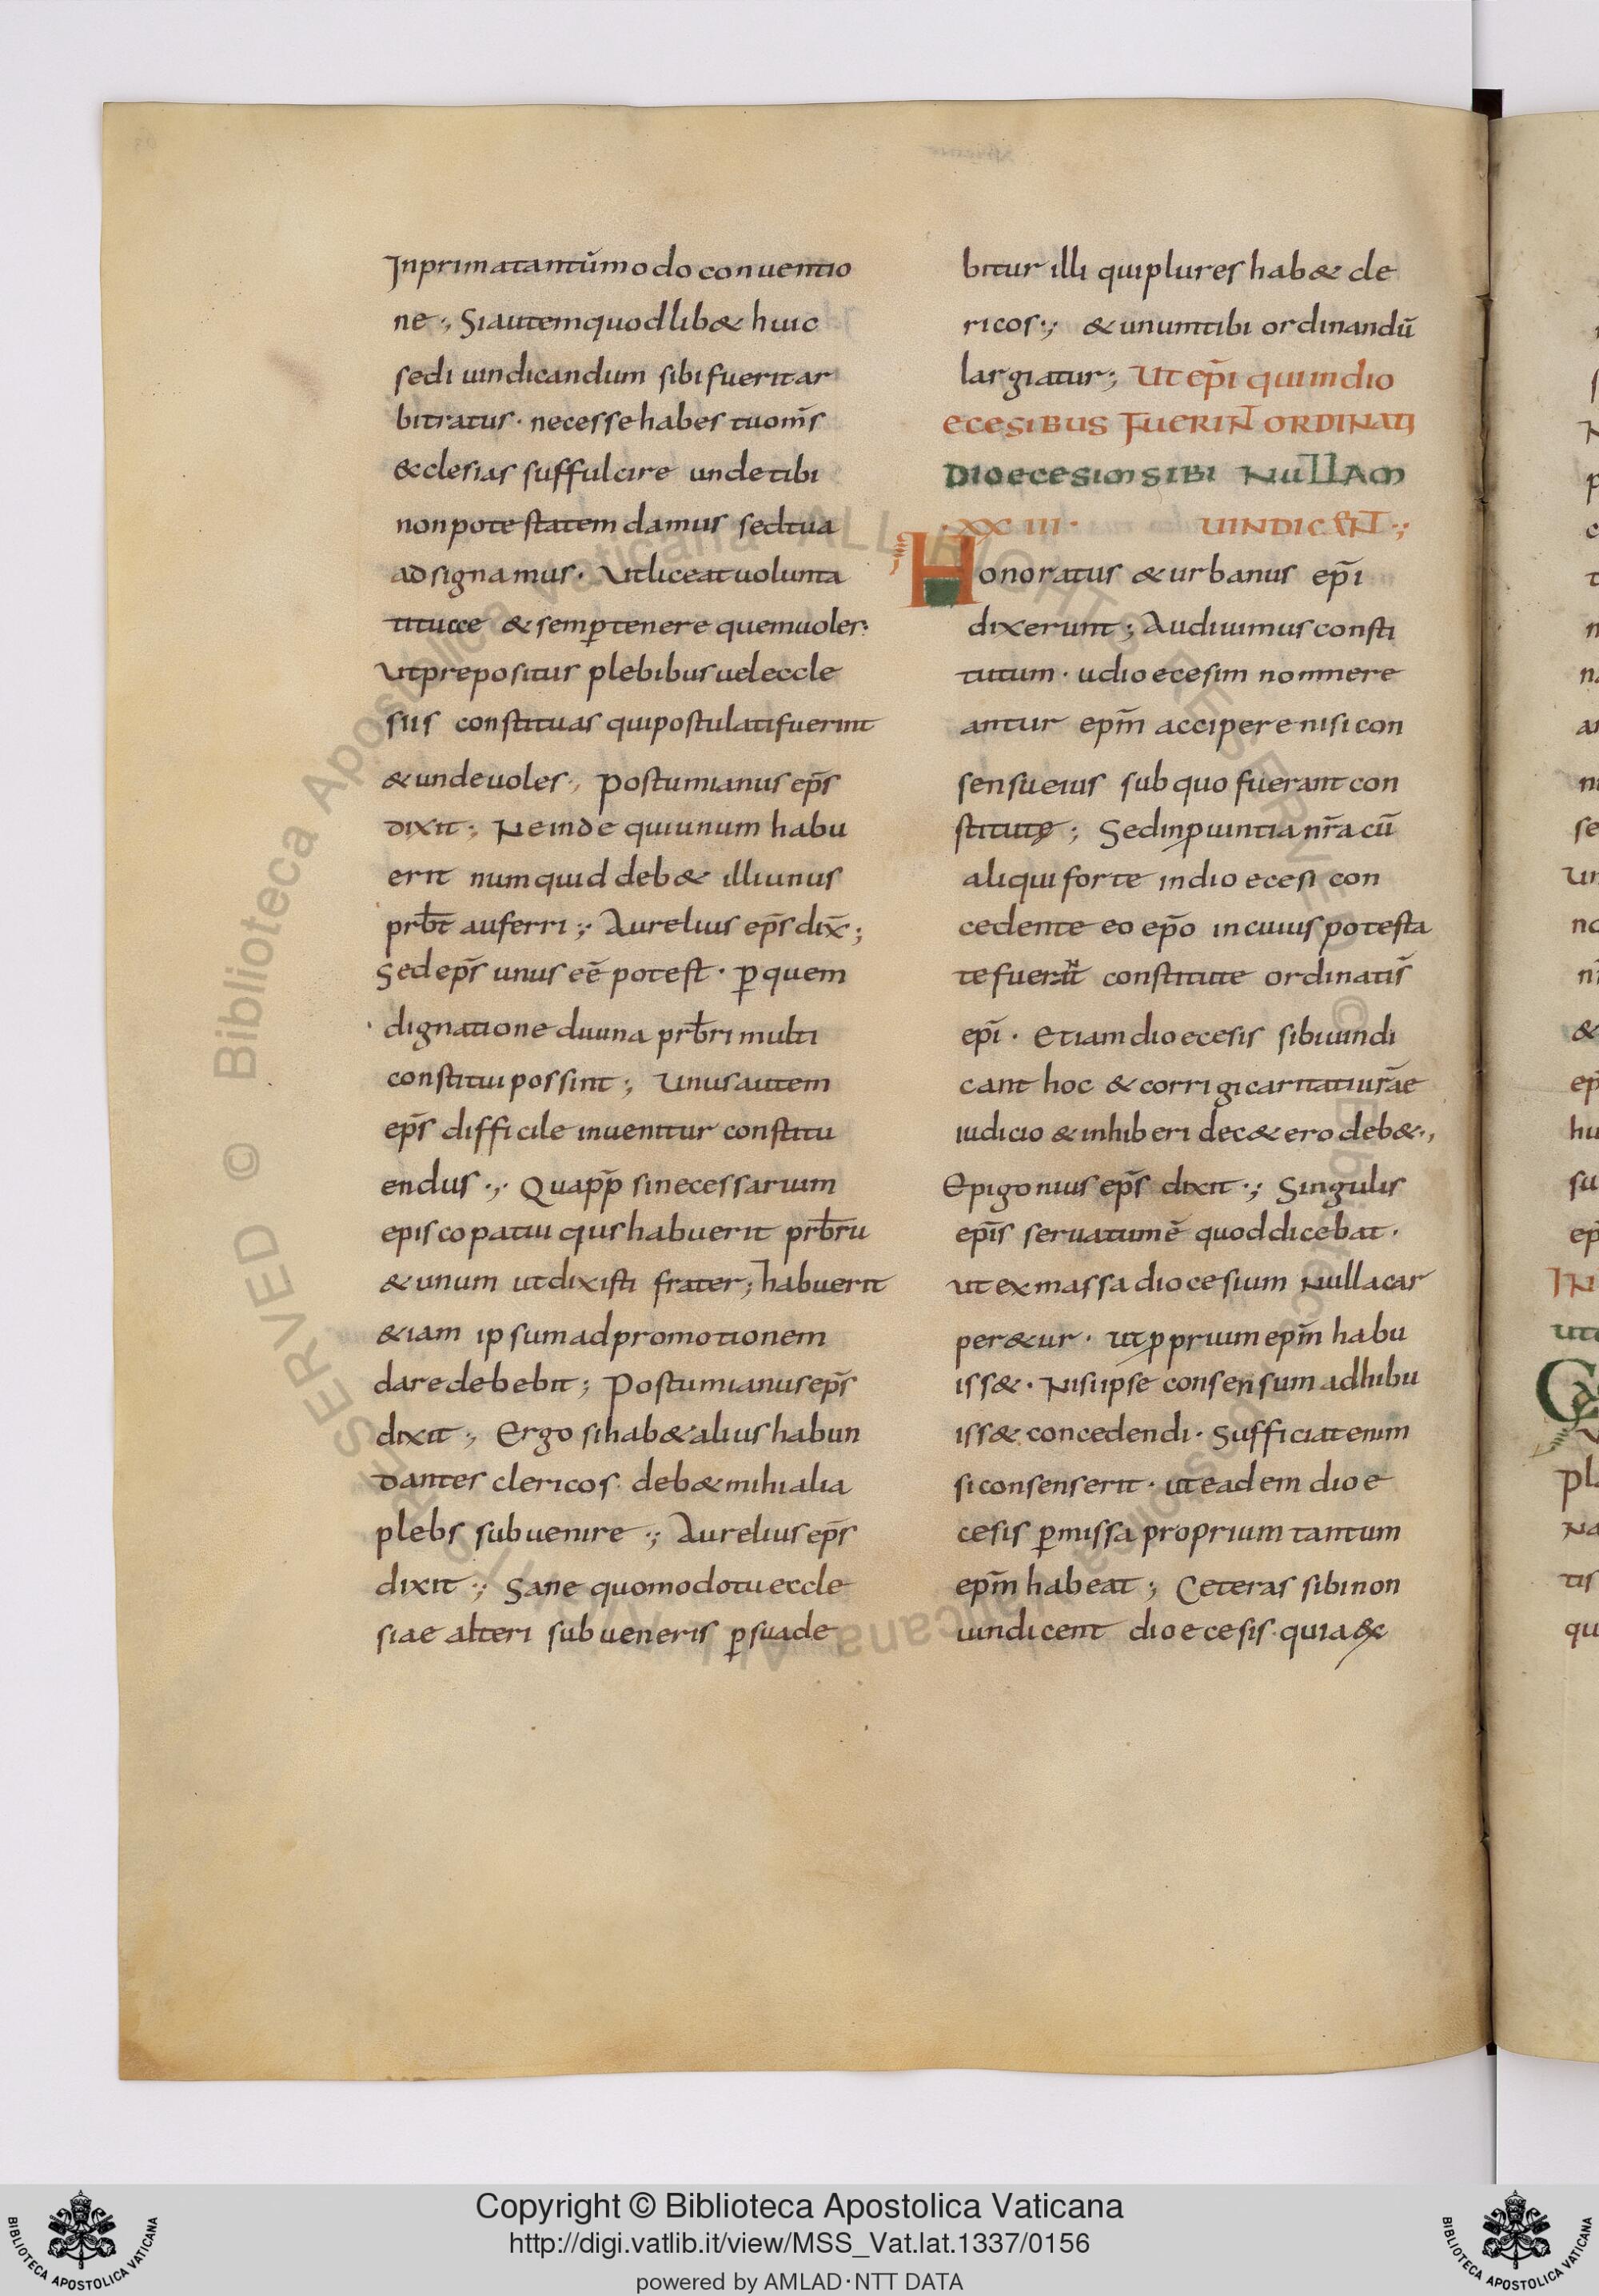 Inprimatantūmodo conuentio
ne·; Siautemquodlib& huic
sedi uindicandum sibifueritar
bitratus· necessehabes tuom̄s
&clesias suffulcire undetibi
nonpotestatem damus sedtua
adsignamus· Utliceatuolunta
titucce &semp̱tenere quemuoler:
Utprepositus plebibusueleccle
siis constituas quipostulatifuerint
&undeuoles·, Postumianus ep̄s
dixit; Neinde quiunum habu
erit numquid deb& illiunus
prb̄t auferri·; Aurelius ep̄s dix̄;
Sedep̄s unus eē potest· p̱quem
dignationediuina prb̄ri multi
constitui possint; Unusautem
ep̄s difficile inuenitur constitu
endus·,· Quapp̄ sinecessarium
episcopatui qushabuerit prb̄ru
&unum utdixisti frater; habuerit
&iam ipsumadpromotionem
daredebebit; Postumianusep̄s
dixit; Ergo sihab&aliushabun
dantes clericos· deb&mihialia
plebs subuenire·; Aureliusep̄s
dixit·; Sane quomodotueccle
siae alteri subueneris p̱suade
bitur illi quiplureshab& cle
ricos·; &unumtibi ordinandū
largiatur; Ut ep̄i quiindio
ecesibus fuerint ordinati
dioecesimsibi nullam
·XXIII· uindicent·;
Honoratus &urbanus ep̄i
dixerunt; Audiuimusconsti
tutum· udioecesim nonmere
antur epm̄ accipere nisicon
sensueius subquo fuerantcon
stitutę; Sedinp̱uintianr̄a cū
aliquiforte indioecesi con
cedente eo ep̄o incuiuspotesta
tefuerūt constitute ordinatis̄
ep̄i· Etiamdioecesis sibiuindi
cant hoc &corrigicaritatiur̄ae
iudicio &inhiberi dec&erodeb&·,
Epigoniusep̄s dixit·; Singulis
ep̄is seruatumē quoddicebat·
utexmassadiocesium Nullacar
per&ur· utp̱prium epm̄ habu
iss&· Nisiipse consensumadhibu
iss& concedendi· Sufficiatenim
siconsenserit· uteadem dioe
cesis p̱missaproprium tantum
epm̄ habeat; Ceteras sibinon
uindicent dioecesis·quia&
Copyright © Biblioteca Apostolica Vaticana
http://digi.vatlib.it/view/MSS_Vat.lat.1337/0156
powered by AMLAD·NTT DATA
BIBLIOTECA APOSTOLICA VATICANA
BIBLIOTECA APOSTOLICA VATICANA